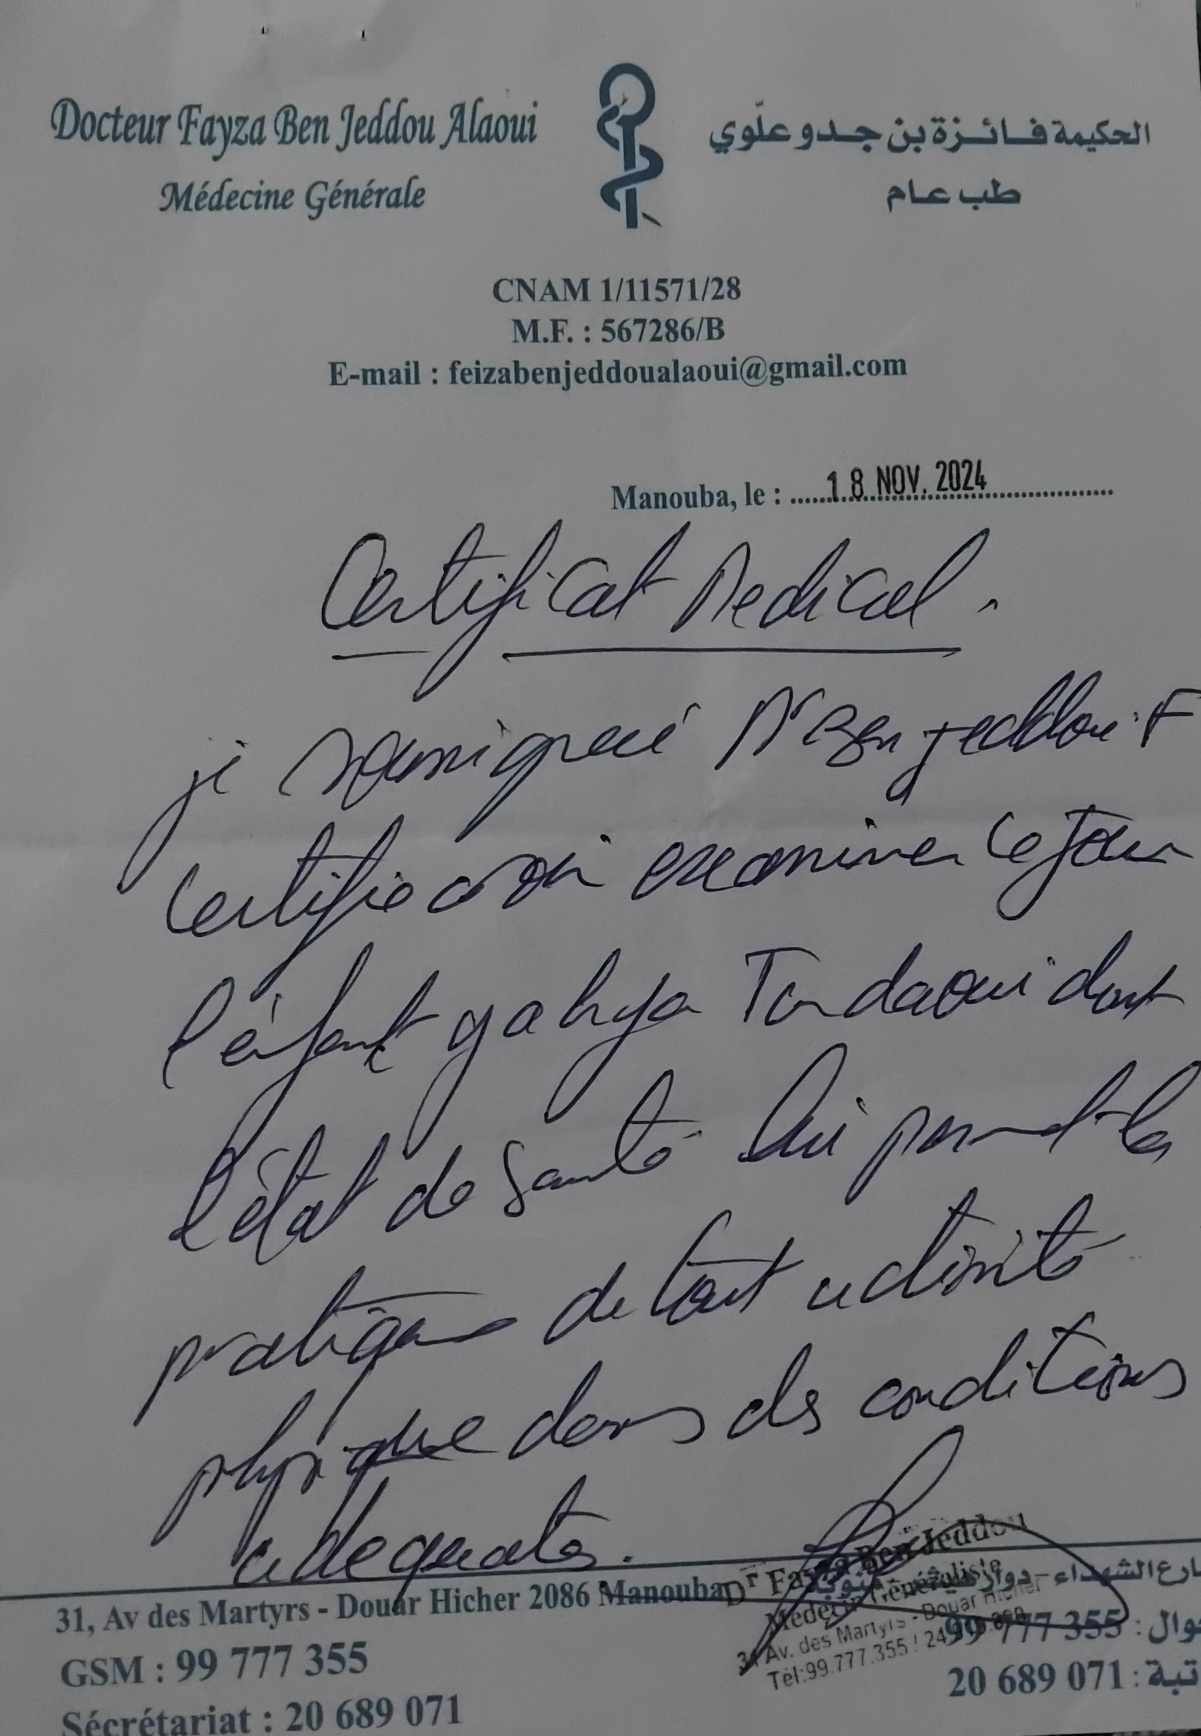 Docteur Fayza Ben Jeddou Alaoui
Médecine Générale
الحكيمة فائزة بن جدو علّوي
طب عام
CNAM 1/11571/28
M.F. : 567286/B
E-mail : feizabenjeddoualaoui@gmail.com
Manouba, le : 18 NOV. 2024
Certificat Medical.
je soussigneé Dr Ben Jeddou F
Certifie avoir examiner ce jour
l'enfant yahya dont
l'état de santé lui permet la
pratique de tout activité
physique dans des conditions
adequates.
31, Av des Martyrs - Douar Hicher 2086 Manouba
GSM : 99 777 355
Sécrétariat : 20 689 071
Dr Fayza Ben Jeddou
Médecin Généraliste
31 Av. des Martyrs - Douar Hicher
Tél:99.777.355 /
ارع الشهداء - دوار
وال : 99 777 355
تبة : 20 689 071